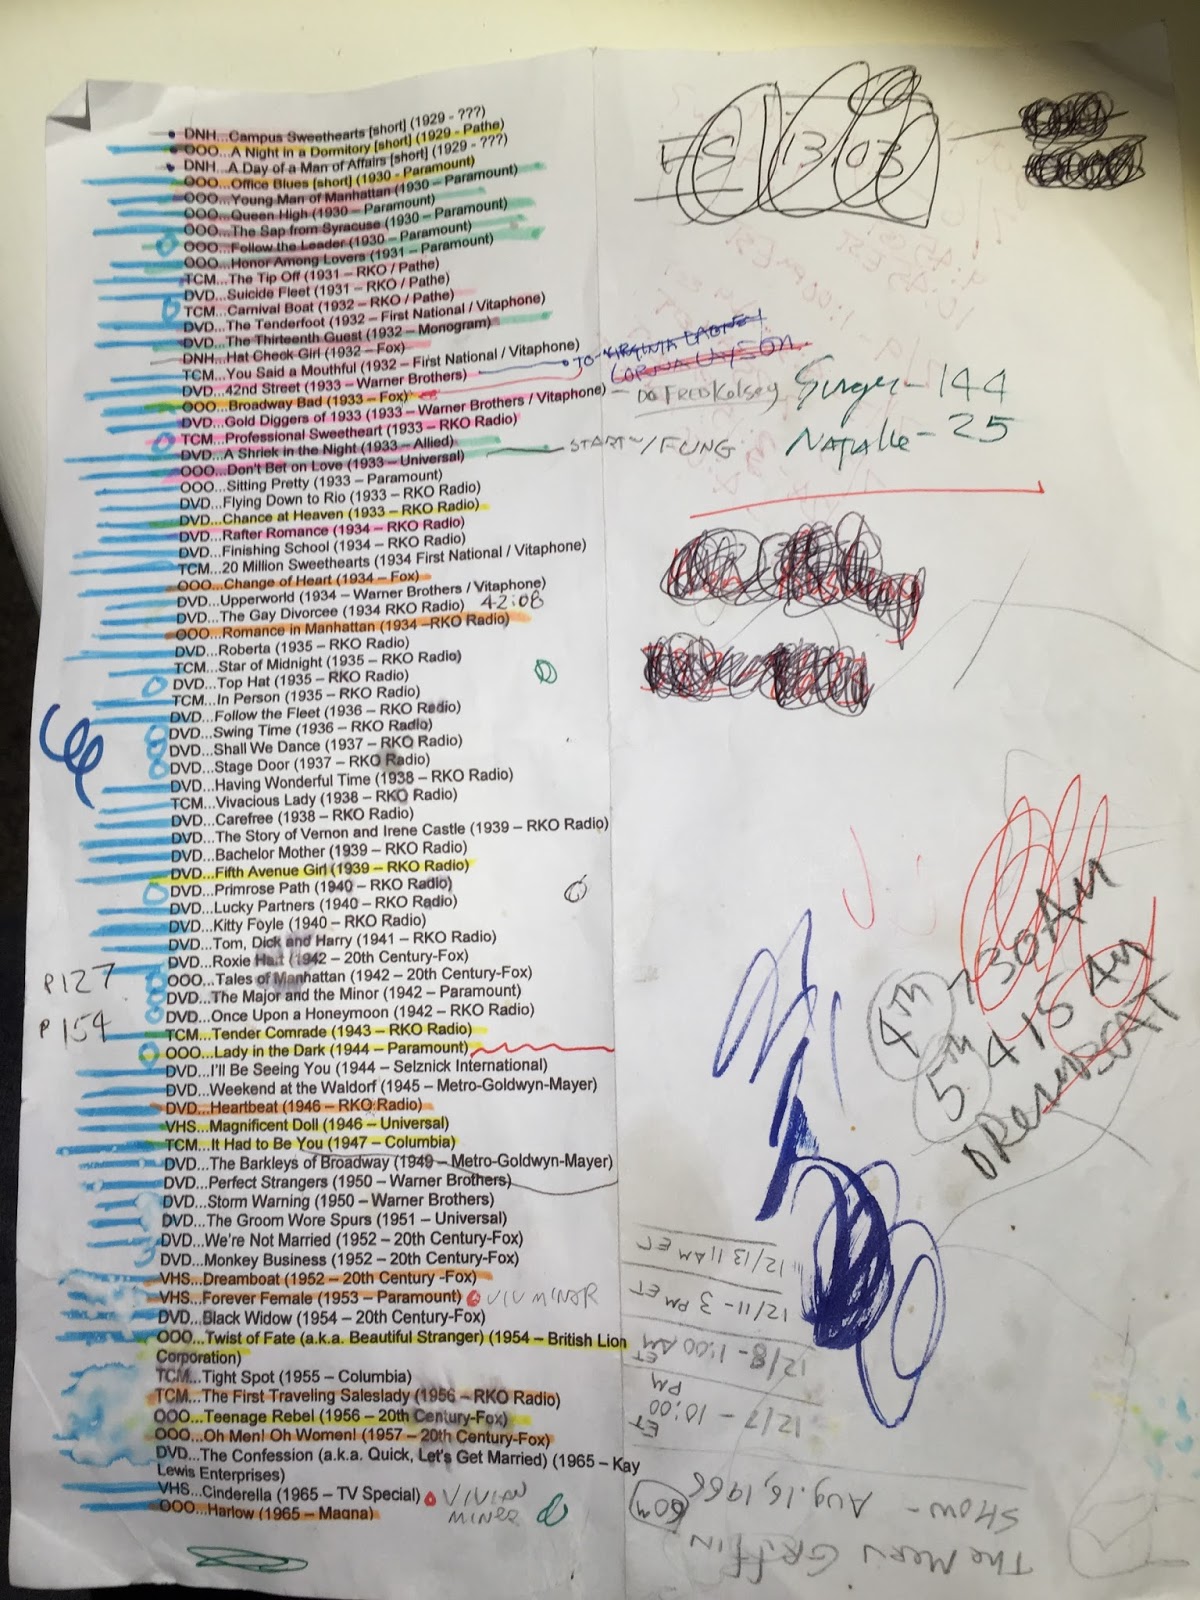 DNH...Campus Sweethearts [short] (1929 - ???)
OOO...A Night in a Dormitory [short] (1929 - Pathe)
DNH...A Day of a Man of Affairs [short] (1929 - ???)
OOO...Office Blues [short] (1930 - Paramount)
OOO...Young Man of Manhattan (1930 – Paramount)
OOO...Queen High (1930 - Paramount)
OOO...The Sap from Syracuse (1930 – Paramount)
OOO...Follow the Leader (1930 – Paramount)
OOO...Honor Among Lovers (1931 – Paramount)
TCM...The Tip Off (1931 – RKO / Pathe)
DVD...Suicide Fleet (1931 – RKO / Pathe)
TCM...Carnival Boat (1932 – RKO / Pathe)
DVD...The Tenderfoot (1932 – First National / Vitaphone)
DVD...The Thirteenth Guest (1932 – Monogram)
DNH...Hat Check Girl (1932 – Fox)
TCM...You Said a Mouthful (1932 - First National / Vitaphone)
DVD...42nd Street (1933 – Warner Brothers)
OOO...Broadway Bad (1933 – Fox)
DVD...Gold Diggers of 1933 (1933 – Warner Brothers / Vitaphone)
TCM...Professional Sweetheart (1933 – RKO Radio)
DVD...A Shriek in the Night (1933 – Allied)
OOO...Don't Bet on Love (1933 – Universal)
OOO...Sitting Pretty (1933 – Paramount)
DVD...Flying Down to Rio (1933 – RKO Radio)
DVD...Chance at Heaven (1933 – RKO Radio)
DVD...Rafter Romance (1934 – RKO Radio)
DVD...Finishing School (1934 – RKO Radio)
TCM...20 Million Sweethearts (1934 First National / Vitaphone)
OOO...Change of Heart (1934 – Fox)
DVD...Upperworld (1934 – Warner Brothers / Vitaphone)
DVD...The Gay Divorcee (1934 RKO Radio) 42:08
OOO...Romance in Manhattan (1934 –RKO Radio)
DVD...Roberta (1935 – RKO Radio)
TCM...Star of Midnight (1935 – RKO Radio)
DVD...Top Hat (1935 – RKO Radio)
TCM...In Person (1935 – RKO Radio)
DVD...Follow the Fleet (1936 – RKO Radio)
DVD...Swing Time (1936 – RKO Radio)
DVD...Shall We Dance (1937 – RKO Radio)
DVD...Stage Door (1937 – RKO Radio)
DVD...Having Wonderful Time (1938 – RKO Radio)
TCM...Vivacious Lady (1938 – RKO Radio)
DVD...Carefree (1938 – RKO Radio)
DVD...The Story of Vernon and Irene Castle (1939 – RKO Radio)
DVD...Bachelor Mother (1939 – RKO Radio)
DVD...Fifth Avenue Girl (1939 – RKO Radio)
DVD...Primrose Path (1940 – RKO Radio)
DVD...Lucky Partners (1940 – RKO Radio)
DVD...Kitty Foyle (1940 – RKO Radio)
DVD...Tom, Dick and Harry (1941 – RKO Radio)
DVD...Roxie Hart (1942 – 20th Century-Fox)
OOO...Tales of Manhattan (1942 – 20th Century-Fox)
DVD...The Major and the Minor (1942 – Paramount)
DVD...Once Upon a Honeymoon (1942 – RKO Radio)
TCM...Tender Comrade (1943 – RKO Radio)
OOO...Lady in the Dark (1944 – Paramount)
DVD...I'll Be Seeing You (1944 – Selznick International)
DVD...Weekend at the Waldorf (1945 – Metro-Goldwyn-Mayer)
DVD...Heartbeat (1946 – RKO Radio)
VHS...Magnificent Doll (1946 – Universal)
TCM...It Had to Be You (1947 – Columbia)
DVD...The Barkleys of Broadway (1949 – Metro-Goldwyn-Mayer)
DVD...Perfect Strangers (1950 – Warner Brothers)
DVD...Storm Warning (1950 – Warner Brothers)
DVD...The Groom Wore Spurs (1951 – Universal)
DVD...We're Not Married (1952 – 20th Century-Fox)
DVD...Monkey Business (1952 – 20th Century-Fox)
VHS...Dreamboat (1952 – 20th Century -Fox)
VHS...Forever Female (1953 – Paramount) VIV MINER
DVD...Black Widow (1954 – 20th Century-Fox)
OOO...Twist of Fate (a.k.a. Beautiful Stranger) (1954 – British Lion
Corporation)
TCM...Tight Spot (1955 – Columbia)
TCM...The First Traveling Saleslady (1956 – RKO Radio)
OOO...Teenage Rebel (1956 – 20th Century-Fox)
OOO...Oh Men! Oh Women! (1957 – 20th Century-Fox)
DVD...The Confession (a.k.a. Quick, Let's Get Married) (1965 – Kay
Lewis Enterprises)
VHS...Cinderella (1965 – TV Special) VIVIAN
MINER
OOO...Harlow (1965 – Magna)
P127
P154
13:03
TO
FRED Kelsey
START
Ginger - 144
Natalie - 25
4TH 730 AM
5TH 415 AM
DREAMBOAT
THE MERV GRIFFIN
SHOW - Aug. 16, 1968 60m
12/7 - 10:00
PM
ET
12/8 - 1:00 AM
ET
12/11 - 3 PM ET
12/13 11 AM ET